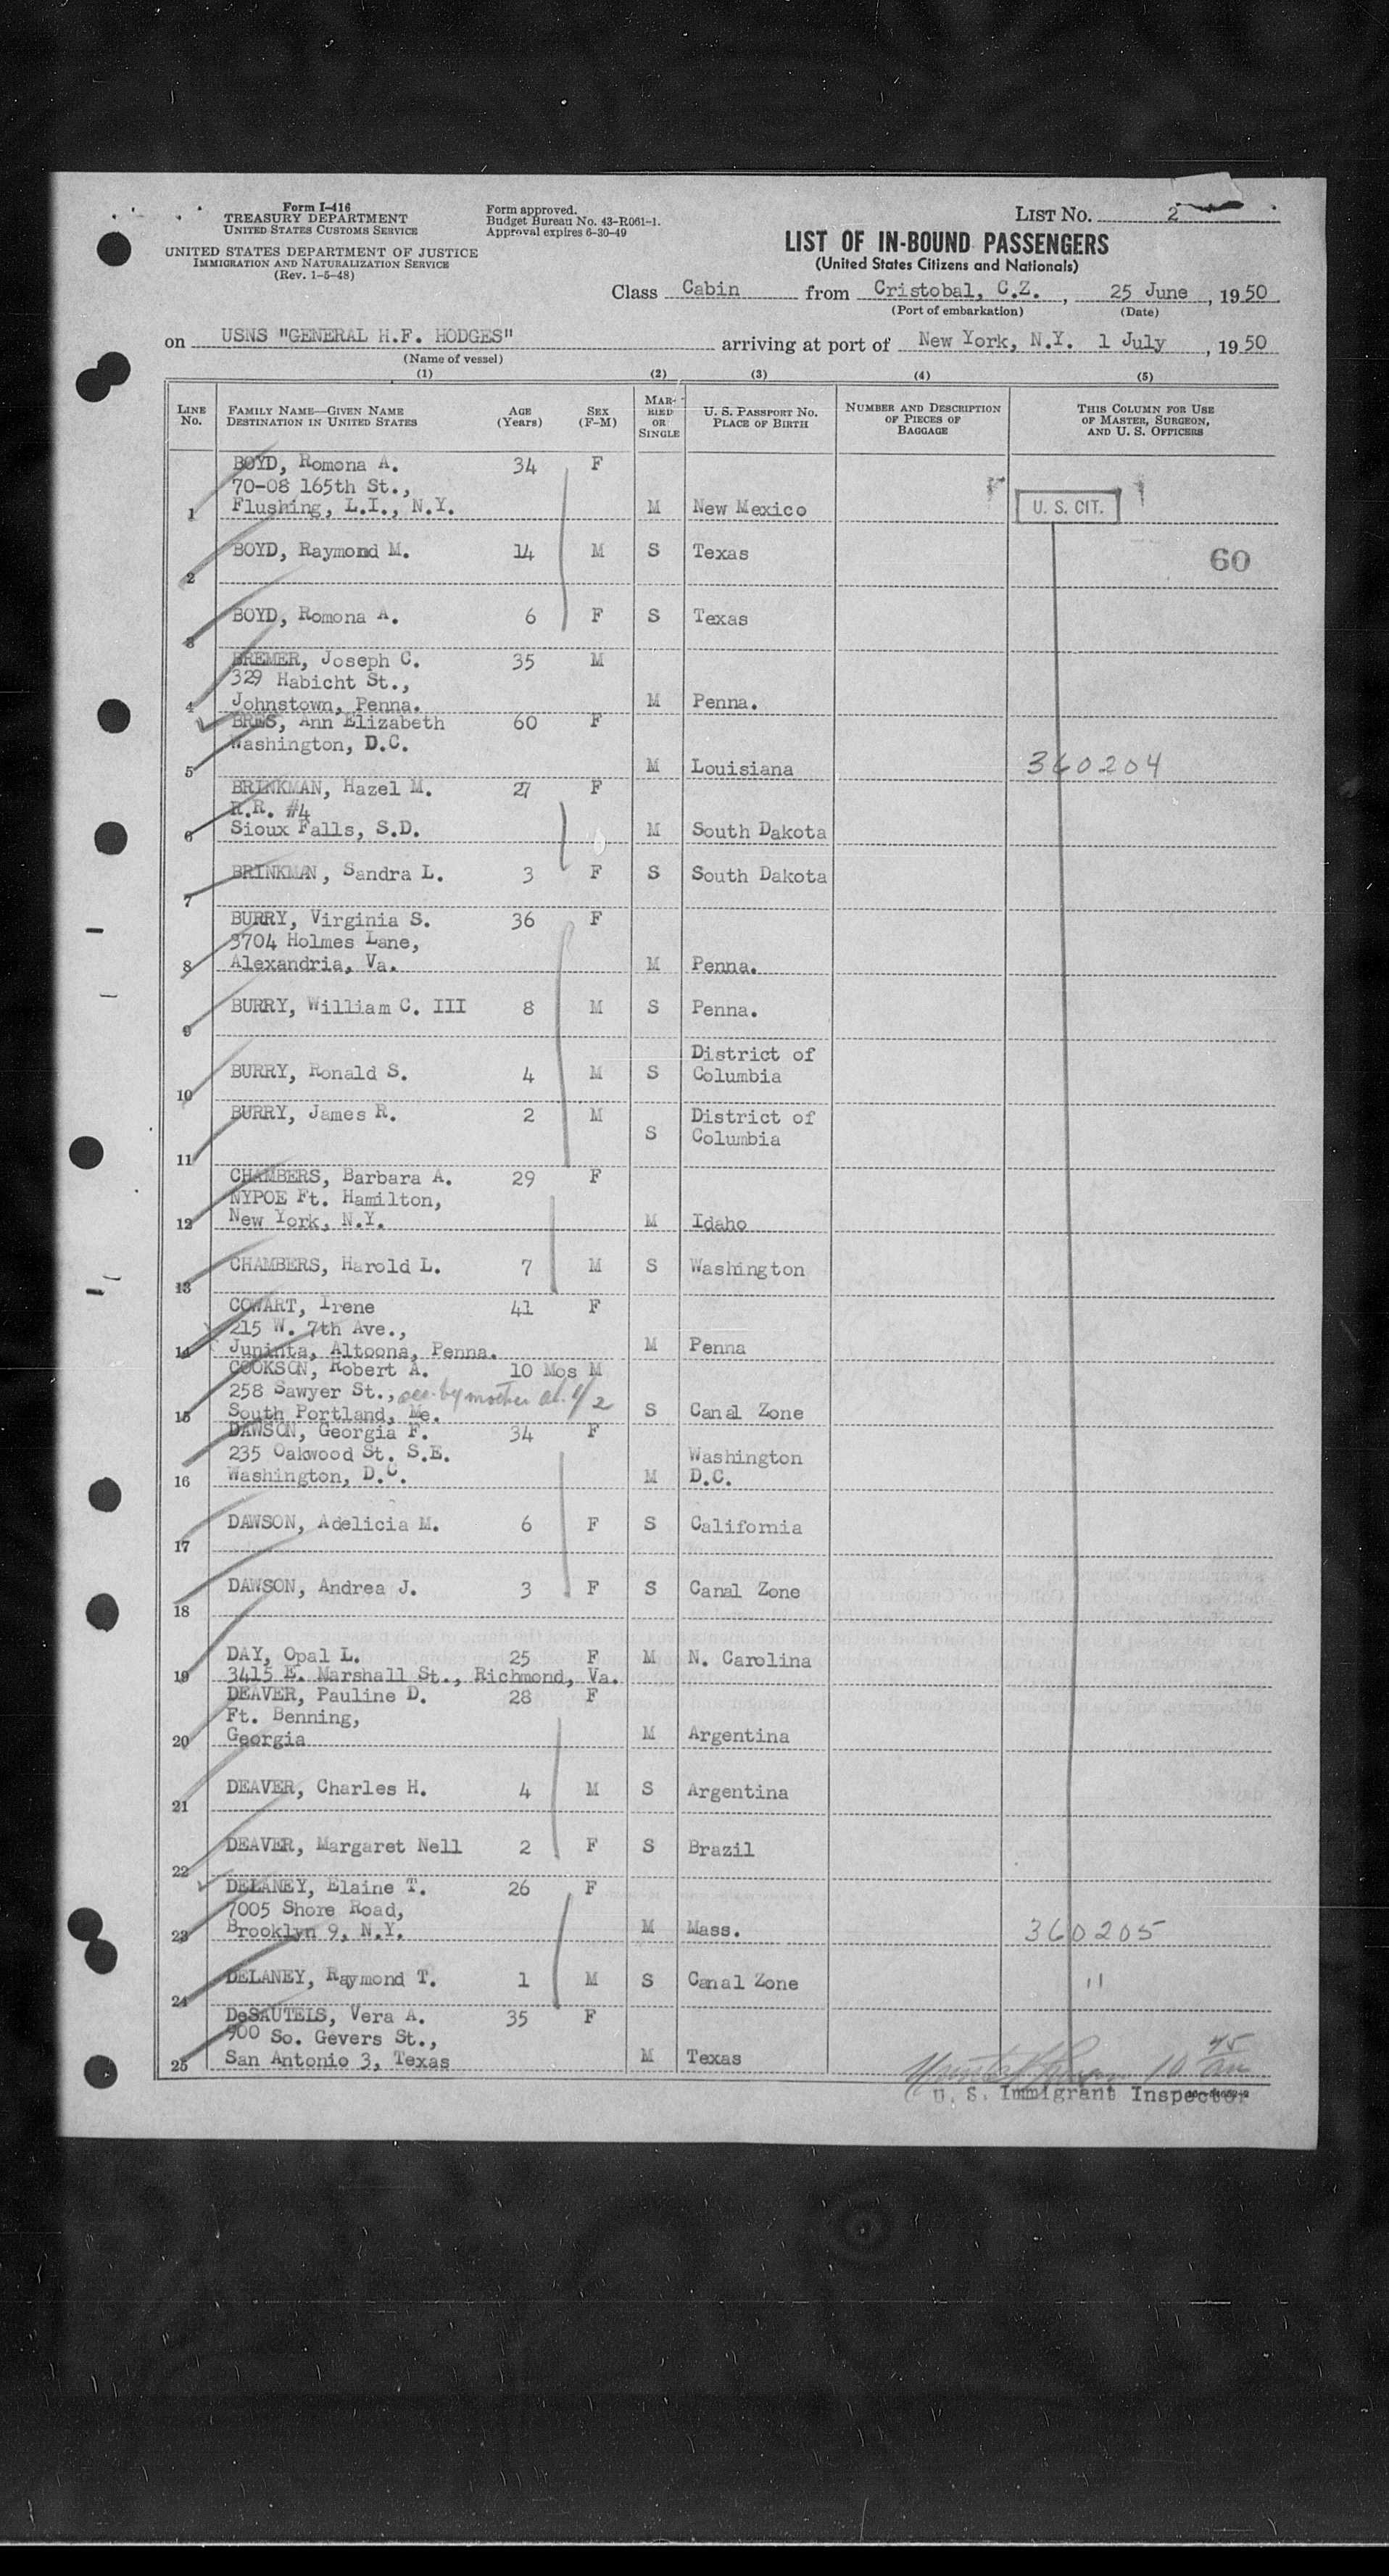 Form I-416
TREASURY DEPARTMENT
UNITED STATES CUSTOMS SERVICE
UNITED STATES DEPARTMENT OF JUSTICE
IMMIGRATION AND NATURALIZATION SERVICE
(Rev. 1-5-48)
Form approved.
Budget Bureau No. 43-R061-1.
Approval expires 6-30-49
LIST NO. 2
LIST OF IN-BOUND PASSENGERS
(United States Citizens and Nationals)
Class Cabin from Cristobal, C.Z., 25 June, 1950
(Port of embarkation) (Date)
on USNS "GENERAL H.F. HODGES" arriving at port of New York, N.Y. 1 July, 1950
(Name of vessel)
(1) (2) (3) (4) (5)
LINE NO. FAMILY NAME—GIVEN NAME DESTINATION IN UNITED STATES AGE (Years) SEX (F-M) MARRIED OR SINGLE U. S. PASSPORT NO. PLACE OF BIRTH NUMBER AND DESCRIPTION OF PIECES OF BAGGAGE THIS COLUMN FOR USE OF MASTER, SURGEON, AND U. S. OFFICERS
BOYD, Romona A. 34 F
70-08 165th St.,
1 Flushing, L.I., N.Y. M New Mexico U. S. CIT.
BOYD, Raymond M. 14 M S Texas 60
2
BOYD, Romona A. 6 F S Texas
3
BREMER, Joseph C. 35 M
329 Habicht St.,
4 Johnstown, Penna. M Penna.
BRES, Ann Elizabeth 60 F
Washington, D.C.
5 M Louisiana 360204
BRINKMAN, Hazel M. 27 F
R.R. #4
6 Sioux Falls, S.D. M South Dakota
BRINKMAN, Sandra L. 3 F S South Dakota
7
BURRY, Virginia S. 36 F
3704 Holmes Lane,
8 Alexandria, Va. M Penna.
BURRY, William C. III 8 M S Penna.
9
District of
BURRY, Ronald S. 4 M S Columbia
10
BURRY, James R. 2 M District of
S Columbia
11
CHAMBERS, Barbara A. 29 F
NYPOE Ft. Hamilton,
12 New York, N.Y. M Idaho
CHAMBERS, Harold L. 7 M S Washington
13
COWART, Irene 41 F
215 W. 7th Ave.,
14 Juninta, Altoona, Penna. M Penna
COOKSON, Robert A. 10 Mos M
258 Sawyer St., by mother
15 South Portland, Me. S Canal Zone
DAWSON, Georgia F. 34 F
235 Oakwood St. S.E. Washington
16 Washington, D.C. M D.C.
DAWSON, Adelicia M. 6 F S California
17
DAWSON, Andrea J. 3 F S Canal Zone
18
DAY, Opal L. 25 F M N. Carolina
19 3415 E. Marshall St., Richmond, Va.
DEAVER, Pauline D. 28 F
Ft. Benning,
20 Georgia M Argentina
DEAVER, Charles H. 4 M S Argentina
21
DEAVER, Margaret Nell 2 F S Brazil
22
DELANEY, Elaine T. 26 F
7005 Shore Road,
23 Brooklyn 9, N.Y. M Mass. 360205
DELANEY, Raymond T. 1 M S Canal Zone "
24
DeSAUTELS, Vera A. 35 F
900 So. Gevers St.,
25 San Antonio 3, Texas M Texas
10 45 am
U. S. Immigrant Inspector